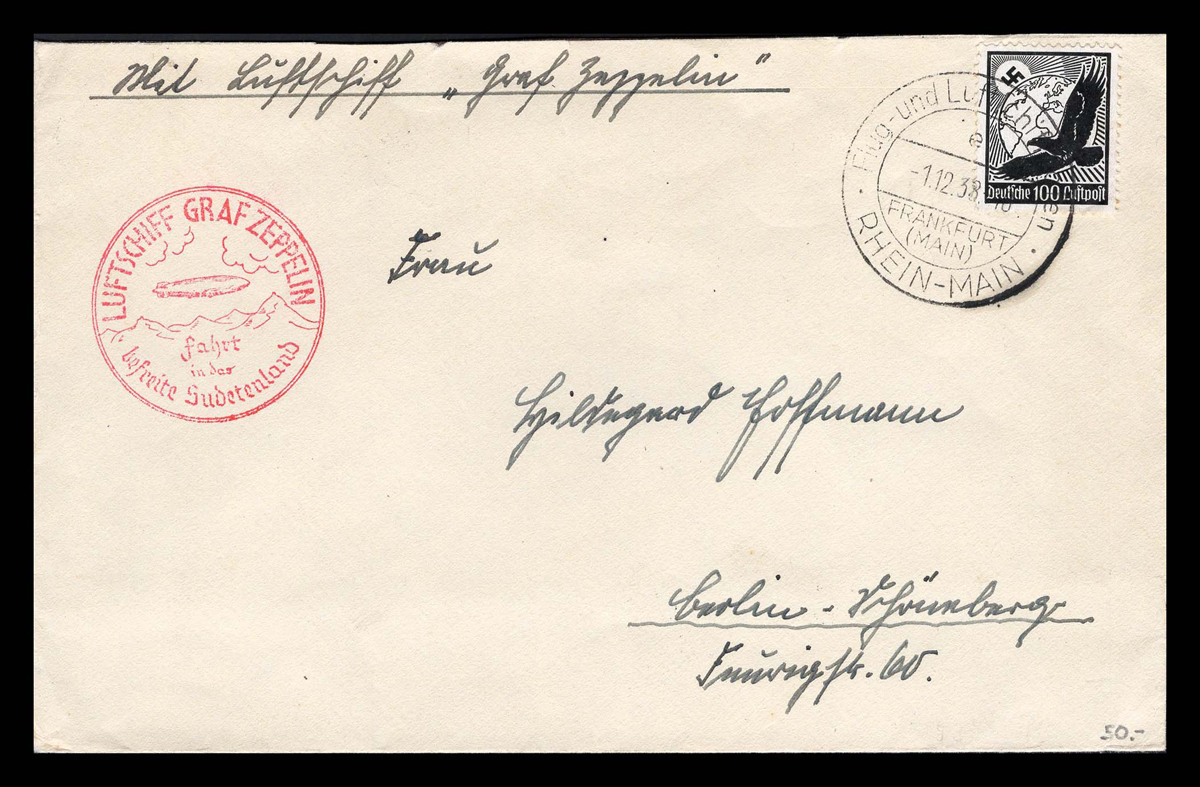 Mit Luftschiff „Graf Zeppelin“
Deutsche 100 Luftpost
Flug- und Luf
en
-1.12.38
FRANKFURT
(MAIN)
· RHEIN-MAIN ·
LUFTSCHIFF GRAF ZEPPELIN
Fahrt
in das
befreite Sudetenland
Frau
Hildegard Hoffmann
Berlin-Schöneberg
Feurigstr. 60.
50.-